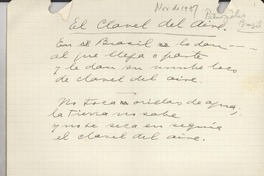 Nov de 1937
El Clavel del Aire.
En el Brasil se lo dan
al que llega o parte
y le dan un nombre loco
de clavel del aire.
No toca orillas de agua,
la tierra no sabe
y no se seca en seguida
el clavel del aire.